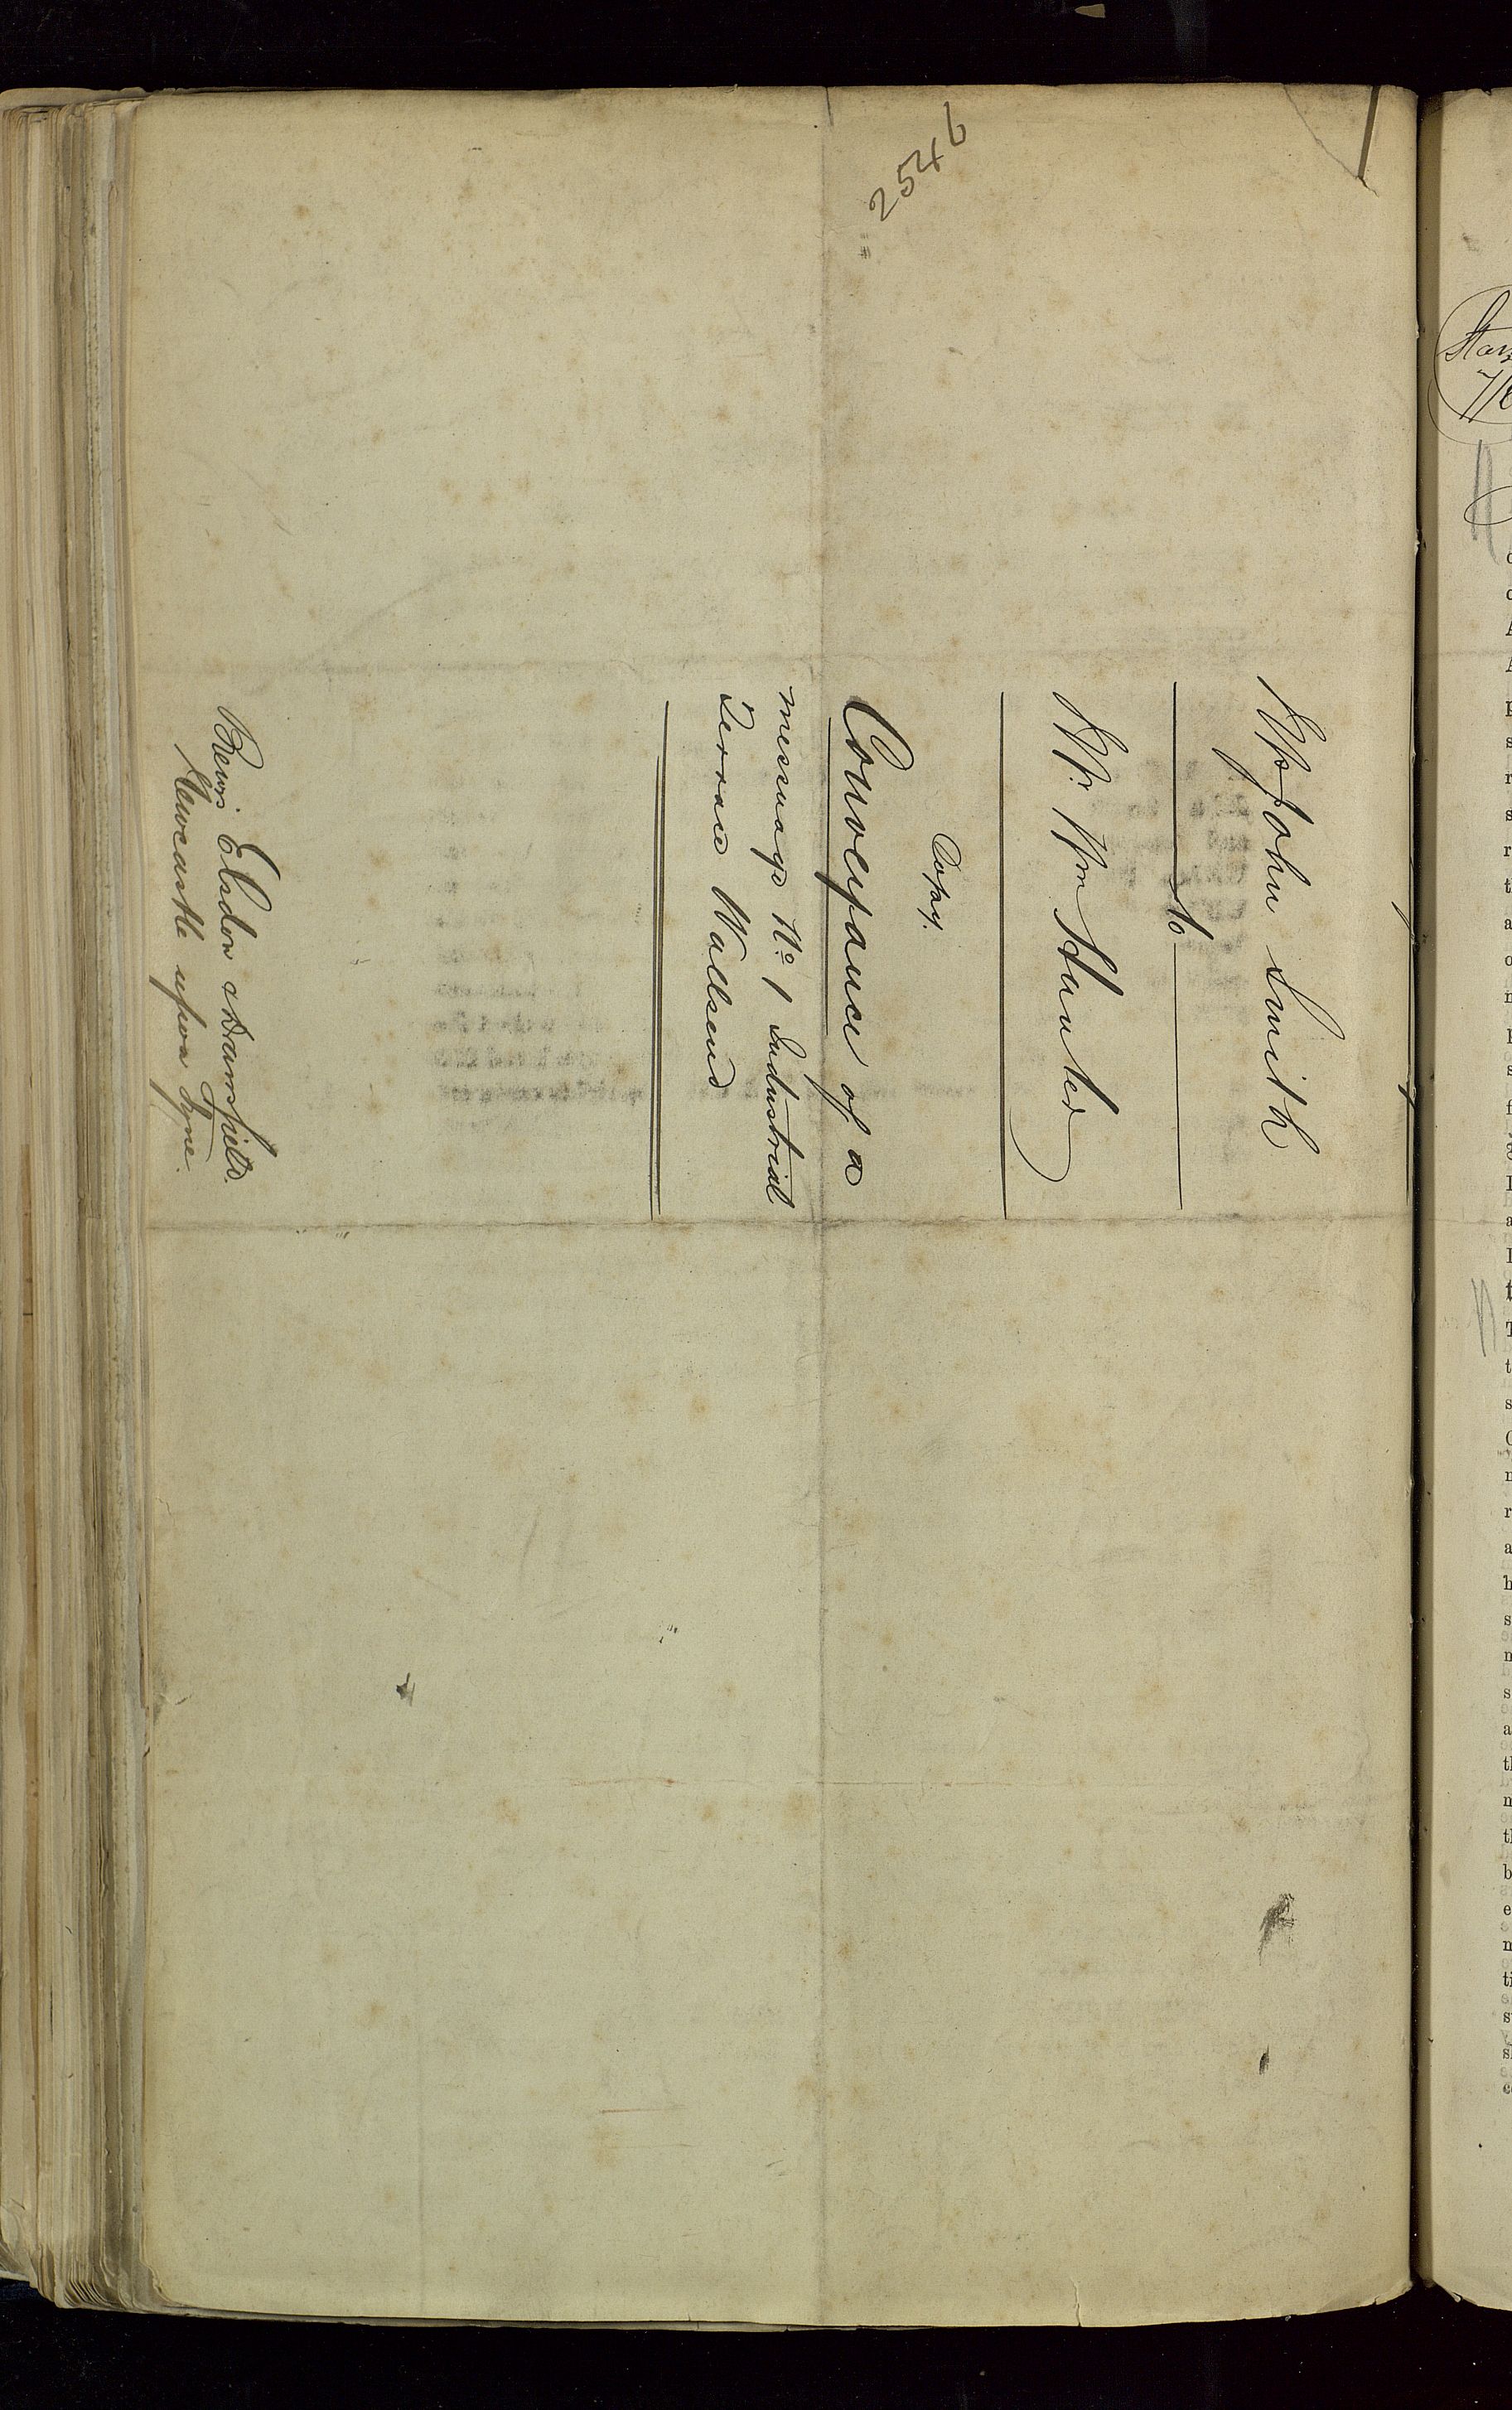 2546
Mr John Smith
to
Mr Wm Hunter
Copy.
Conveyance of a
messuage No 1 Industrial
Terrace Wallsend
Elsdon & Dransfield.
Newcastle upon Tyne.